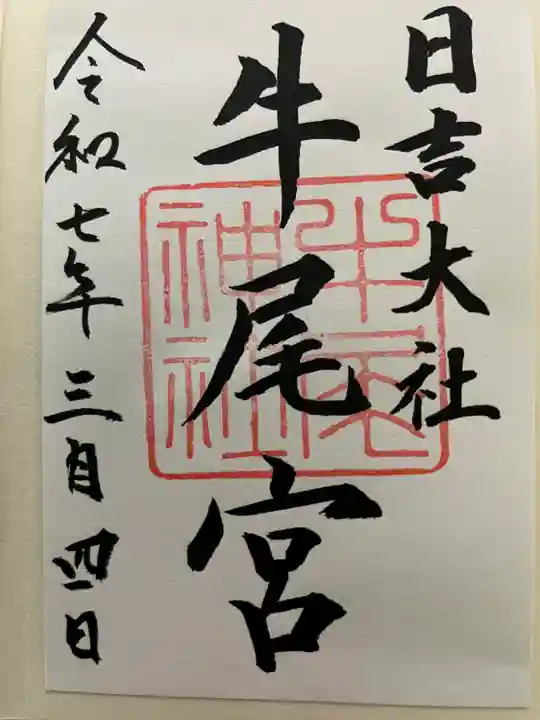 日吉大社
牛尾宮
令和七年三月四日
牛尾
神社